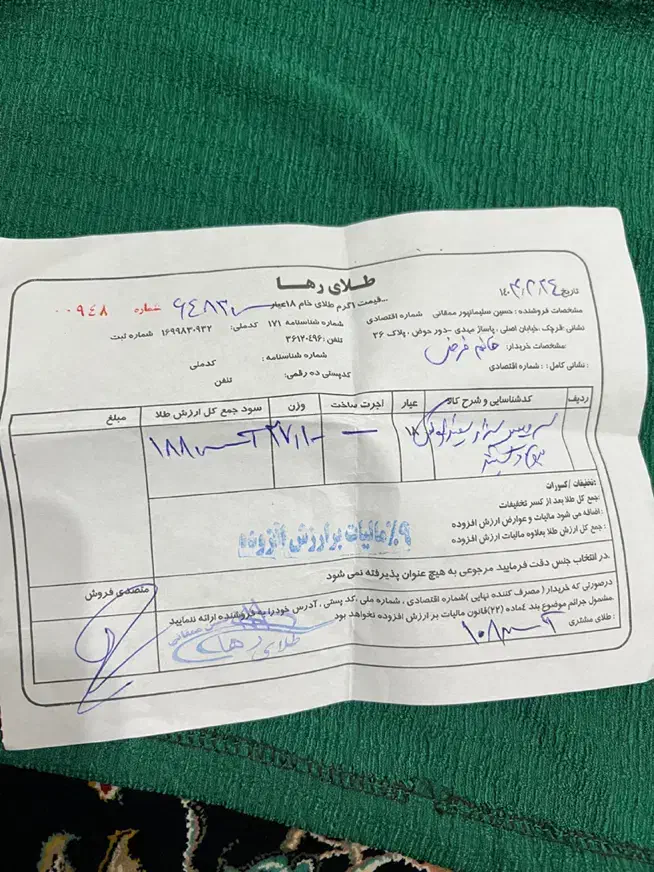 طلای رها
تاریخ ۱۴۰۳,۲,۲۴
قیمت ۱گرم طلای خام ۱۸عیار
شماره ۰۰۹۴۸
مشخصات فروشنده : حسین سلیمانپور ممقانی شماره اقتصادی
شماره شناسنامه ۱۷۱ کدملی: ۱۶۹۹۸۳۰۹۳۲ شماره ثبت
نشانی قرچک، خیابان اصلی ، پاساژ مهدی -دور حوض، پلاک ۳۶
تلفن: ۳۶۱۲۰۴۹۶
مشخصات خریدار: خانم
شماره شناسنامه : کدملی
نشانی کامل: : شماره اقتصادی
کدپستی ده رقمی: تلفن
ردیف کدشناسایی و شرح کالا عیار اجرت ساخت وزن سود جمع کل ارزش طلا مبلغ
سرویس ۱۸ — ۲۷,۱۰ ۱۸۸
تخفیفات /کسورات:
جمع کل طلا بعد از کسر تخفیفات:
اضافه می شود مالیات و عوارض ارزش افزوده:
جمع کل ارزش طلا بعلاوه مالیات ارزش افزوده:
۹٪ مالیات بر ارزش افزوده
در انتخاب جنس دقت فرمایید مرجوعی به هیچ عنوان پذیرفته نمی شود.
متصدی فروش
درصورتی که خریدار ( مصرف کننده نهایی )شماره اقتصادی ، شماره ملی ، کد پستی ، آدرس خودرا به فروشنده ارائه ننمایید
مشمول جرائم موضوع بند ۴ماده (۲۲)قانون مالیات بر ارزش افزوده نخواهد بود
طلای مشتری : ۱۰۸
طلای رها